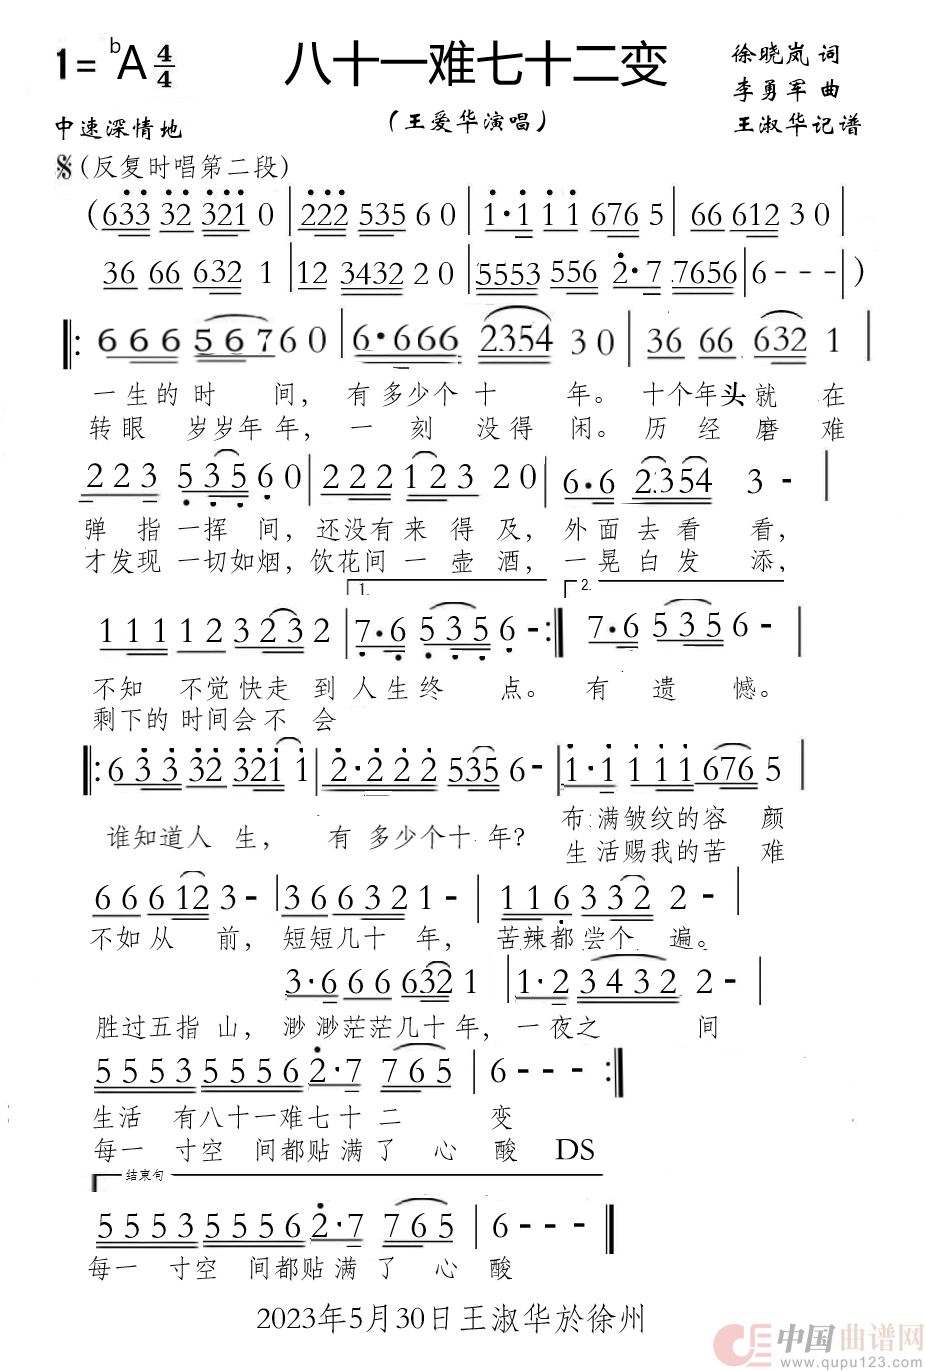 1= ᵇA 4/4
八十一难七十二变
徐晓岚 词
李勇军 曲
王淑华记谱
中速深情地
（王爱华演唱）
𝄋(反复时唱第二段)
(633 32 321 0 | 222 535 6 0 | 1·1 1 1 676 5 | 66 612 3 0 |
36 66 632 1 | 12 3432 2 0 | 5553 556 2·7 7656 | 6 - - - | )
‖: 6 6 6 5 6 7 6 0 | 6·666 2354 3 0 | 36 66 632 1 |
一生的时 间， 有多少个 十 年。 十个年头就 在
转眼 岁岁年 年， 一 刻 没得 闲。 历 经 磨 难
2 2 3 5 3 5 6 0 | 2 2 2 1 2 3 2 0 | 6·6 2354 3 - |
弹 指 一挥 间， 还没有来 得 及， 外面 去看 看，
才发现 一切如烟， 饮花间 一 壶 酒， 一晃 白 发 添，
1.
2.
1 1 1 1 2 3 2 3 2 | 7·6 5 3 5 6 - :‖ 7·6 5 3 5 6 - |
不知 不觉快走 到 人生终 点。 有 遗 憾。
剩下的 时间会不 会
‖: 6 3 3 32 321 1 | 2·2 2 2 535 6 - | 1·1 1 1 1 676 5 |
谁知道人 生， 有 多少个十 年？ 布 满皱纹的容 颜
生 活赐我的苦 难
6 6 6 12 3 - | 3 6 6 3 3 2 1 - | 1 1 6 3 3 2 2 - |
不如 从 前， 短短几十 年， 苦辣都 尝个 遍。
3·6 6 6 632 1 | 1·2 3 4 3 2 2 - |
胜过五指 山， 渺 渺茫茫几十年， 一 夜之 间
5 5 5 3 5 5 5 6 2·7 7 6 5 | 6 - - - :‖
生活 有八十一难七 十 二 变
每一 寸空 间都贴 满 了 心 酸 DS
结束句
5 5 5 3 5 5 5 6 2·7 7 6 5 | 6 - - - ‖
每一 寸空 间都贴 满 了 心 酸
2023年5月30日王淑华於徐州
中国曲谱网
www.qupu123.com